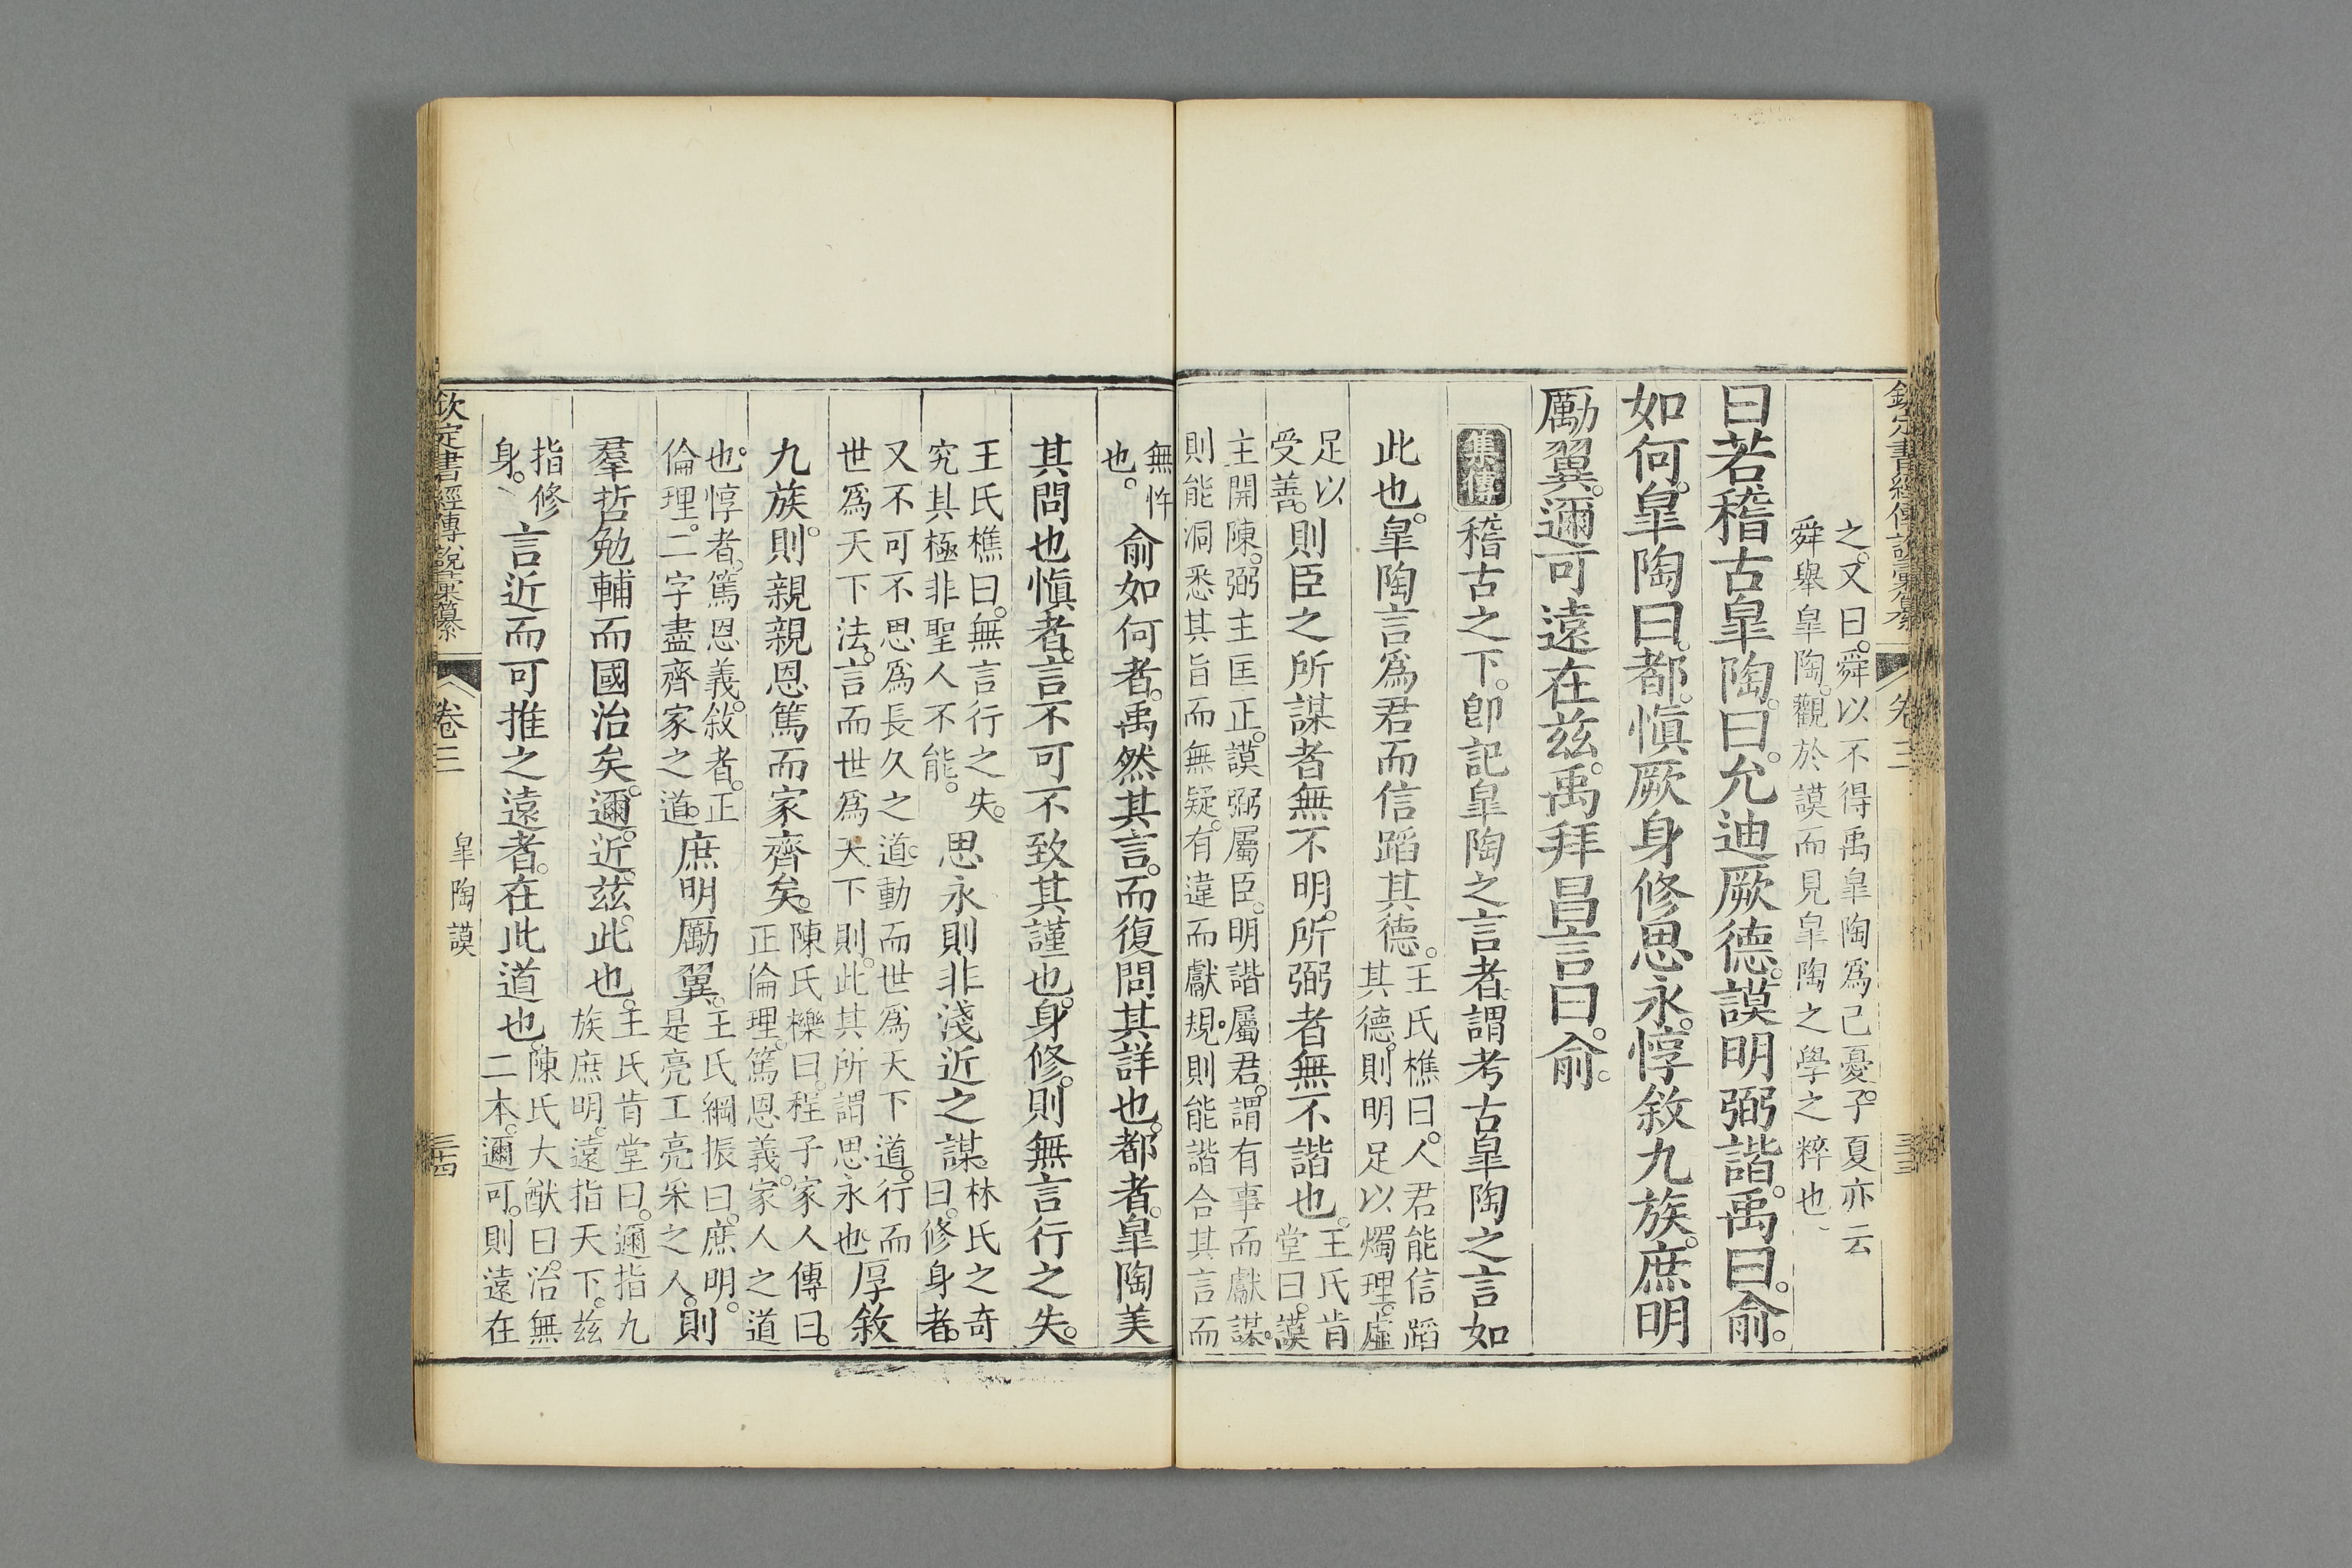 欽定書經傳說彙纂 卷三 三十三
之。又曰。舜以不得禹皐陶爲己憂。子夏亦云
舜舉皐陶。觀於謨而見皐陶之學之粹也
曰若稽古皐陶。曰。允迪厥德。謨明弼諧。禹曰。俞。
如何。皐陶曰。都。愼厥身修思永。惇敘九族。庶明
厲翼。邇可遠在兹。禹拜昌言曰。俞。
集傳 稽古之下。卽記皐陶之言者。謂考古皐陶之言如
此也。皐陶言爲君而信蹈其德。
王氏樵曰。人君能信蹈
其德。則明足以燭理。虛
足以
受善。
則臣之所謀者無不明。所弼者無不諧也。
王氏肯
堂曰。謨
主開陳。弼主匡正。謨弼屬臣。明諧屬君。謂有事而獻謀。
則能洞悉其旨而無疑。有違而獻規。則能諧合其言而
無忤
也。
俞如何者。禹然其言。而復問其詳也。都者。皐陶美
其問也愼者。言不可不致其謹也。身修。則無言行之失。
王氏樵曰。無言行之失。
究其極非聖人不能。
思永則非淺近之謀。
林氏之奇
曰。修身者。
又不可不思爲長久之道。動而世爲天下道。行而
世爲天下法。言而世爲天下則。此其所謂思永也
厚敘
九族。則親親恩篤而家齊矣。
陳氏櫟曰。程子家人傳曰。
正倫理。篤恩義。家人之道
也。惇者。篤恩義。敘者。正
倫理。二字盡齊家之道。
庶明厲翼。
王氏綱振曰。庶明。
是亮工亮采之人。
則
羣哲勉輔而國治矣。邇。近。兹。此也。
王氏肯堂曰。邇指九
族庶明。遠指天下。兹
指修
身。
言近而可推之遠者。在此道也。
陳氏大猷曰。治無
二本。邇可。則遠在
欽定書經傳說彙纂 卷三 皐陶謨 三十四